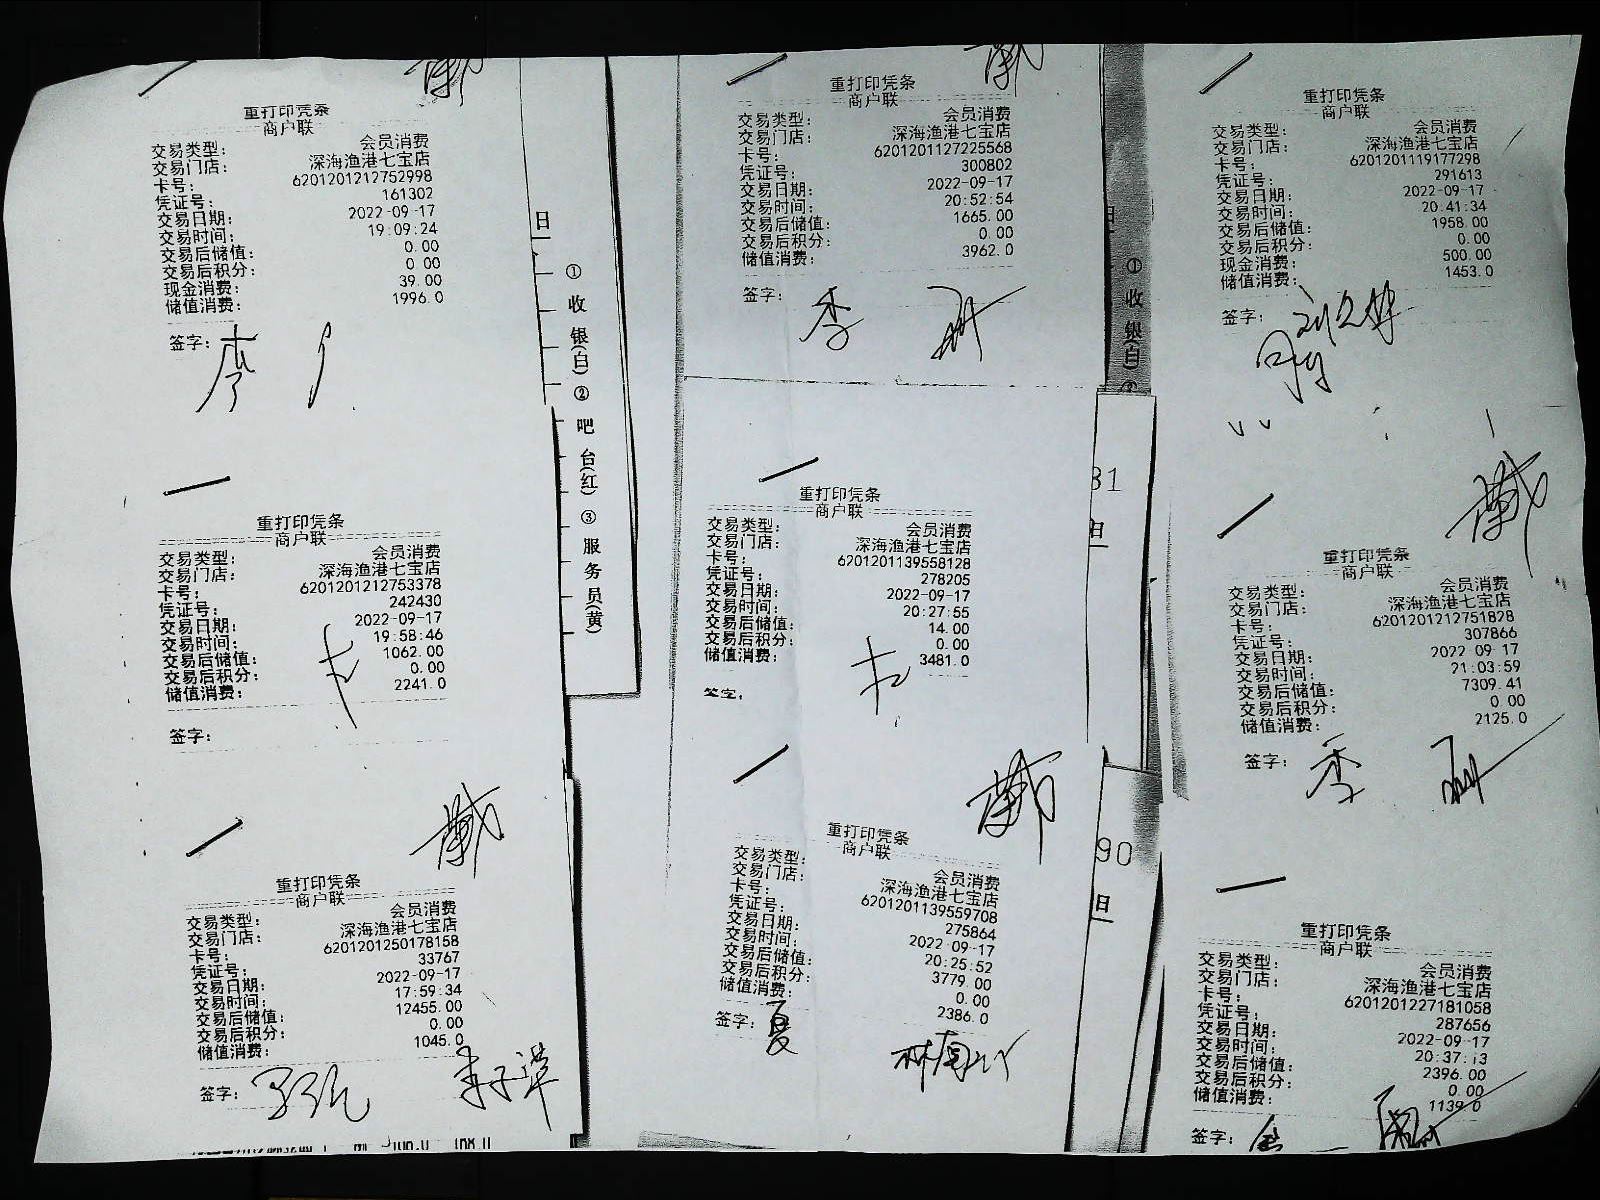 重打印凭条
商户联
交易类型: 会员消费
交易门店: 深海渔港七宝店
卡号: 6201201212752998
凭证号: 161302
交易日期: 2022-09-17
交易时间: 19:09:24
交易后储值: 0.00
交易后积分: 0.00
现金消费: 39.00
储值消费: 1996.0
签字:
重打印凭条
商户联
交易类型: 会员消费
交易门店: 深海渔港七宝店
卡号: 6201201127225568
凭证号: 300802
交易日期: 2022-09-17
交易时间: 20:52:54
交易后储值: 1665.00
交易后积分: 0.00
储值消费: 3962.0
签字: 季
重打印凭条
商户联
交易类型: 会员消费
交易门店: 深海渔港七宝店
卡号: 6201201119177298
凭证号: 291613
交易日期: 2022-09-17
交易时间: 20:41:34
交易后储值: 1958.00
交易后积分: 0.00
现金消费: 500.00
储值消费: 1453.0
签字:
日
①收银(白)②吧台(红)③服务员(黄)
日
①收银(白)②
重打印凭条
商户联
交易类型: 会员消费
交易门店: 深海渔港七宝店
卡号: 6201201212753378
凭证号: 242430
交易日期: 2022-09-17
交易时间: 19:58:46
交易后储值: 1062.00
交易后积分: 0.00
储值消费: 2241.0
签字:
重打印凭条
商户联
交易类型: 会员消费
交易门店: 深海渔港七宝店
卡号: 6201201139558128
凭证号: 278205
交易日期: 2022-09-17
交易时间: 20:27:55
交易后储值: 14.00
交易后积分: 0.00
储值消费: 3481.0
签字:
31
日
重打印凭条
商户联
交易类型: 会员消费
交易门店: 深海渔港七宝店
卡号: 6201201212751828
凭证号: 307866
交易日期: 2022-09-17
交易时间: 21:03:59
交易后储值: 7309.41
交易后积分: 0.00
储值消费: 2125.0
签字: 季
重打印凭条
商户联
交易类型: 会员消费
交易门店: 深海渔港七宝店
卡号: 6201201250178158
凭证号: 33767
交易日期: 2022-09-17
交易时间: 17:59:34
交易后储值: 12455.00
交易后积分: 0.00
储值消费: 1045.0
签字:
重打印凭条
商户联
交易类型: 会员消费
交易门店: 深海渔港七宝店
卡号: 6201201139559708
凭证号: 275864
交易日期: 2022-09-17
交易时间: 20:25:52
交易后储值: 3779.00
交易后积分: 0.00
储值消费: 2386.0
签字: 夏
90
日
重打印凭条
商户联
交易类型: 会员消费
交易门店: 深海渔港七宝店
卡号: 6201201227181058
凭证号: 287656
交易日期: 2022-09-17
交易时间: 20:37:13
交易后储值: 2396.00
交易后积分: 0.00
储值消费: 1139.0
签字: